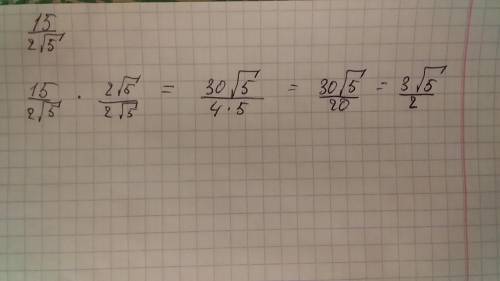 15/2√5
15/2√5 · 2√5/2√5 = 30√5/4·5 = 30√5/20 = 3√5/2